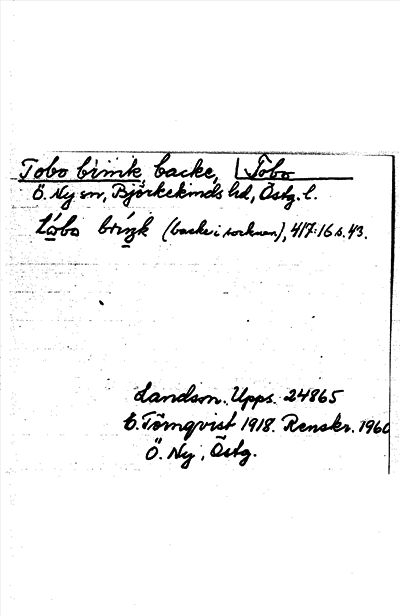 Tobo brink, backe, Tobo
Ö. Ny sn, Björkekinds hd, Östg. l.
(backe i socknen), 417:16 s. 43.
Landsm. Upps. 24865
E. Törnqvist 1918. Renskr. 1960
Ö. Ny, Östg.